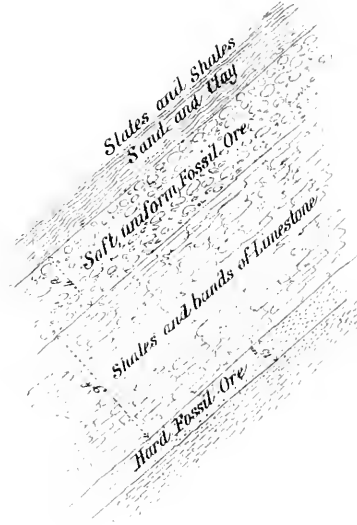 Slates and Shales
Sand and Clay
Soft, uniform, Fossil Ore
Shales and bands of Limestone
Hard Fossil Ore